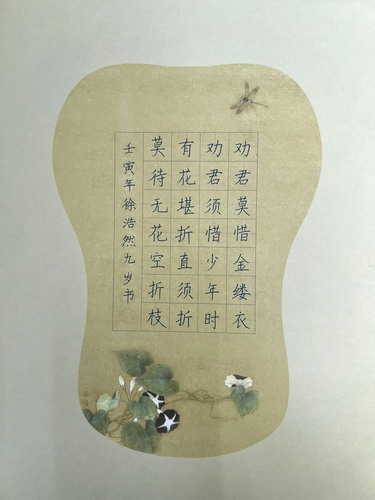 劝君莫惜金缕衣
劝君须惜少年时
有花堪折直须折
莫待无花空折枝
壬寅年徐浩然九岁书